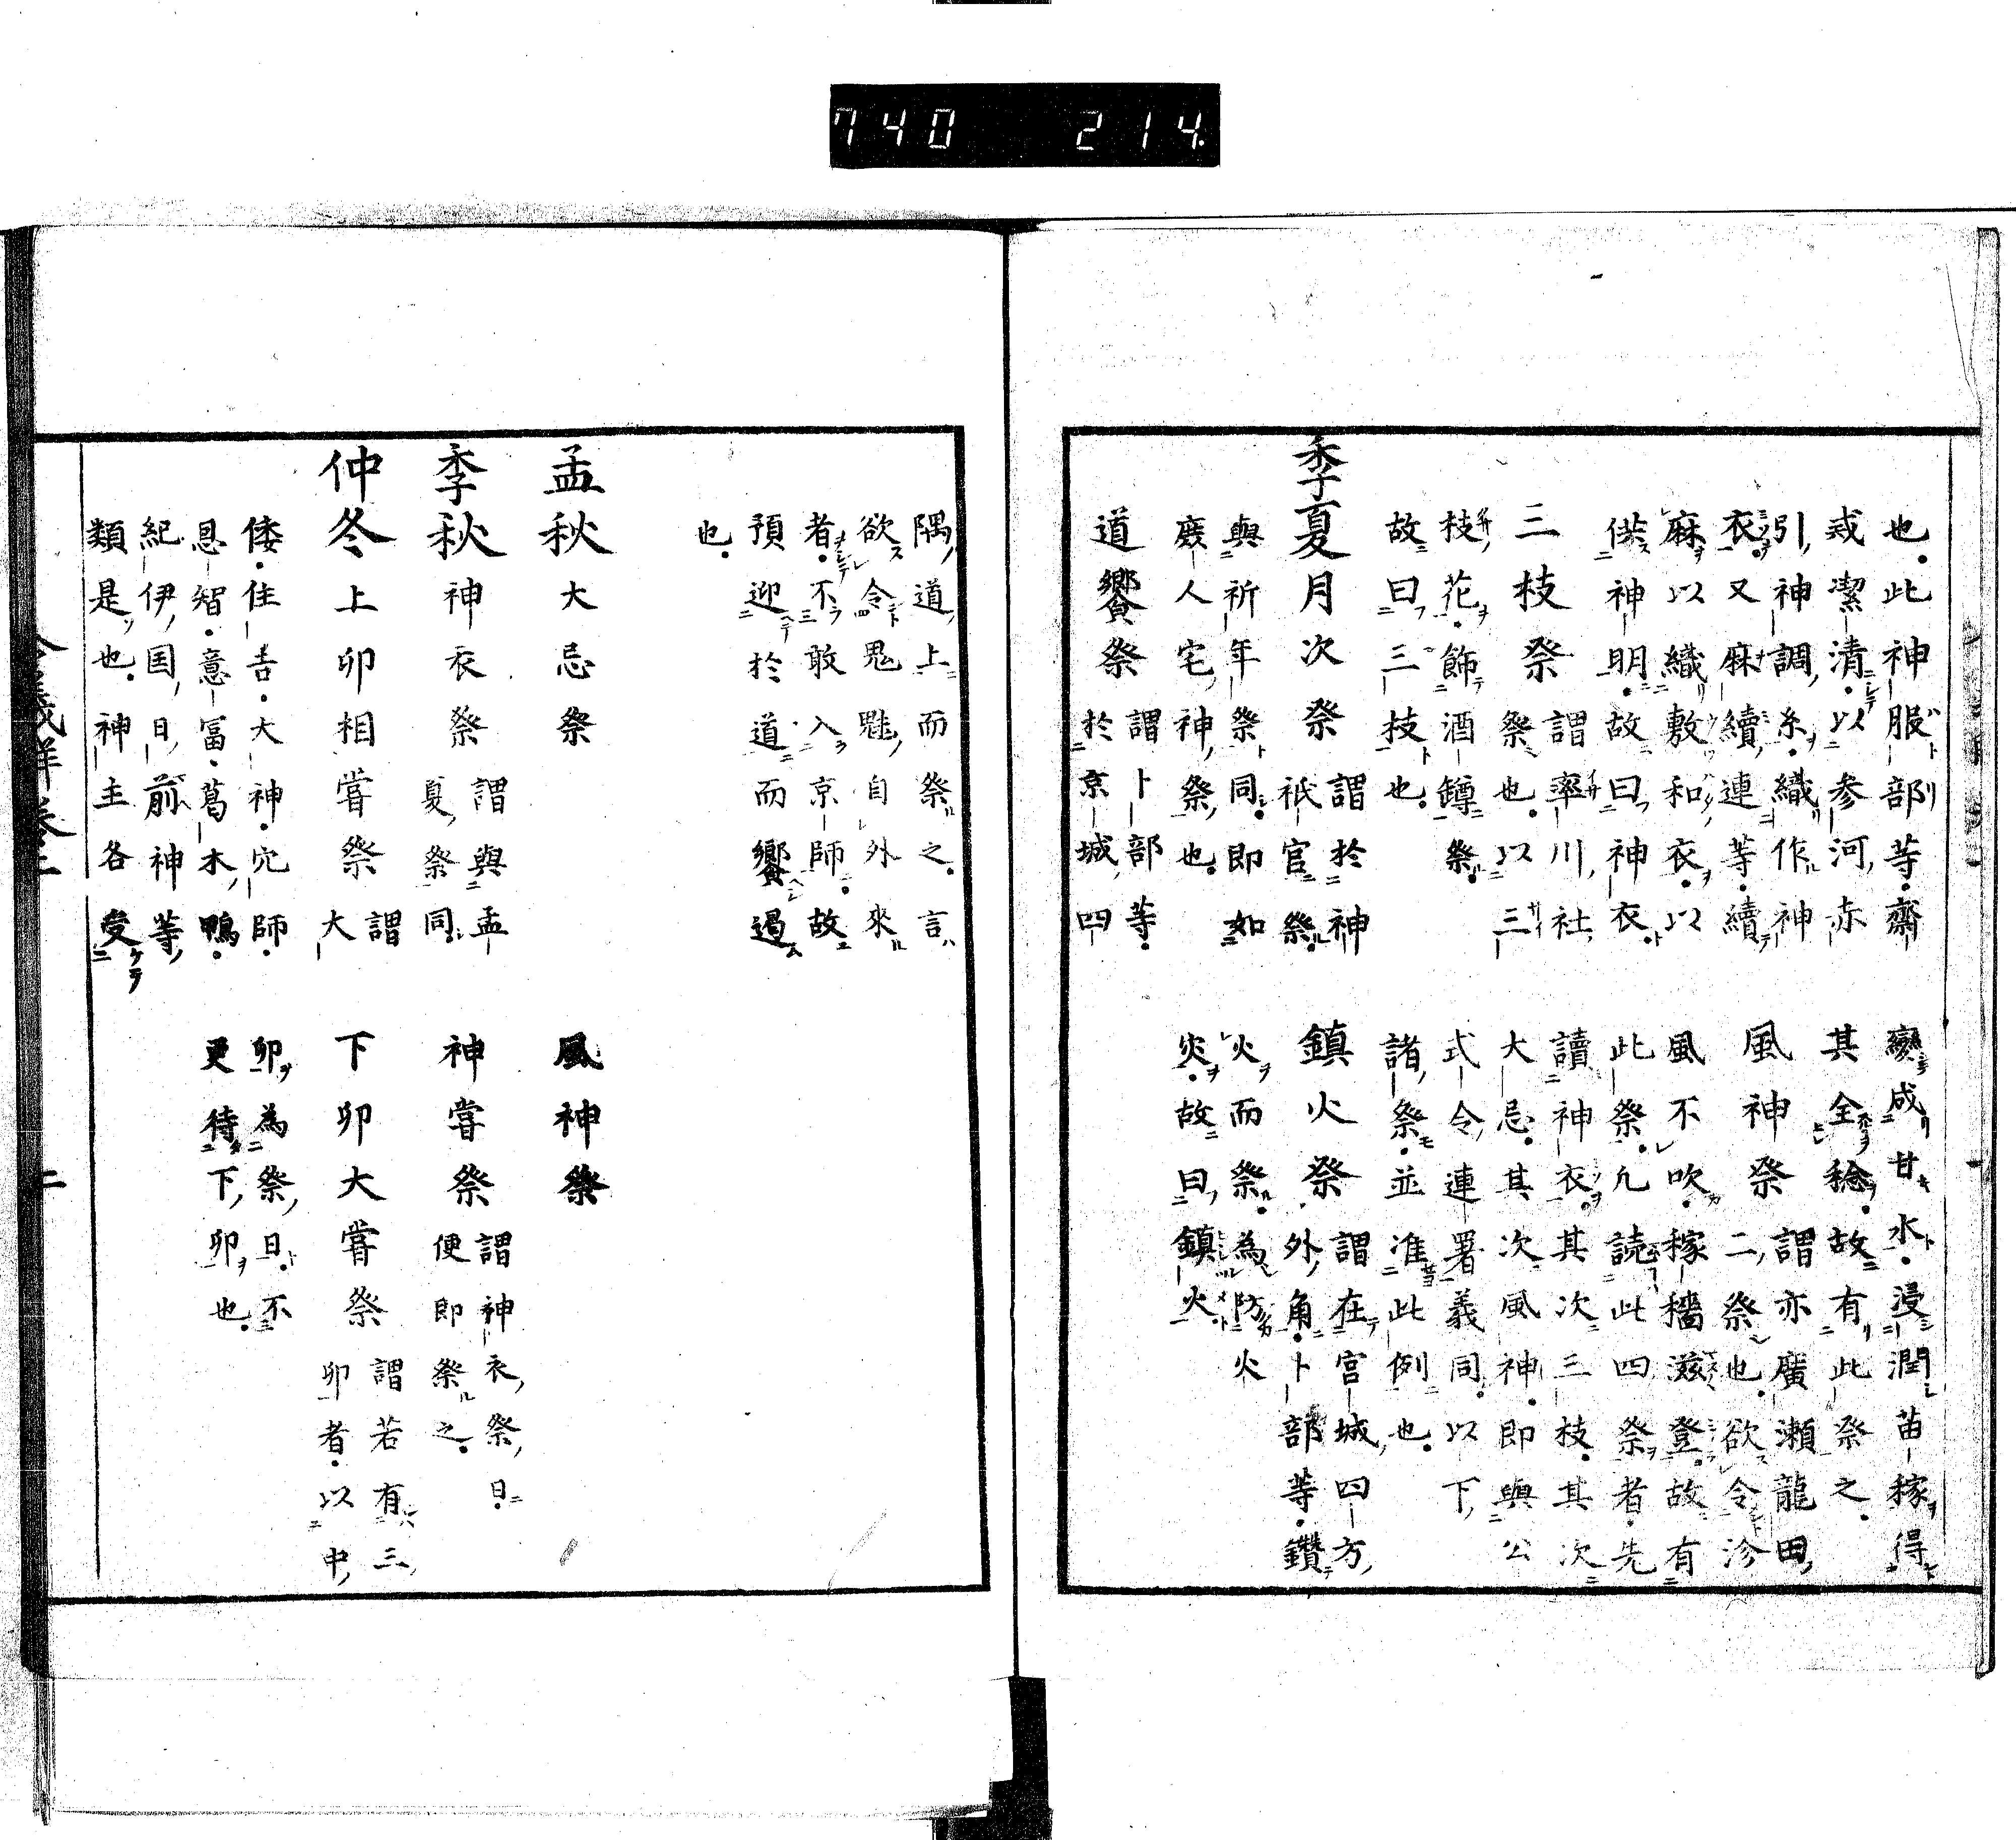 740 214
也此神服部等齋
戒潔清以参河赤
引神調糸織作神
衣又麻續連等續
麻以織敷和衣以
供神明故曰神衣
三枝祭 謂率川社
祭也以三
枝花飾酒罇祭
故曰三枝也
季夏月次祭 謂於神
祇官祭
與祈年祭同即如
庶人宅神祭也
道饗祭 謂卜部等
於京城四
變成甘水浸潤苗稼得
其全稔故有此祭之
風神祭 謂亦廣瀬龍田
二祭也欲令沴
風不吹稼穡滋登故有
此祭凢読此四祭者先
讀神衣其次三枝其次
大忌其次風神即與公
式令連署義同以下
諸祭並准此例也
鎮火祭 謂在宮城四方
外角卜部等鑽
火而祭為防火
災故曰鎮火
隅道上而祭之言
欲令鬼魅自外來
者不敢入京師故
預迎於道而饗遏
也
孟秋大忌祭
季秋神衣祭 謂與孟
夏祭同
仲冬上卯相嘗祭 謂
大
倭住吉大神穴師
恩智意冨葛木鴨
紀伊国日前神等
類是也神主各受
風神祭
神嘗祭 謂神衣祭日
便即祭之
下卯大嘗祭 謂若有三
卯者以中
卯為祭日不
更待下卯也
二